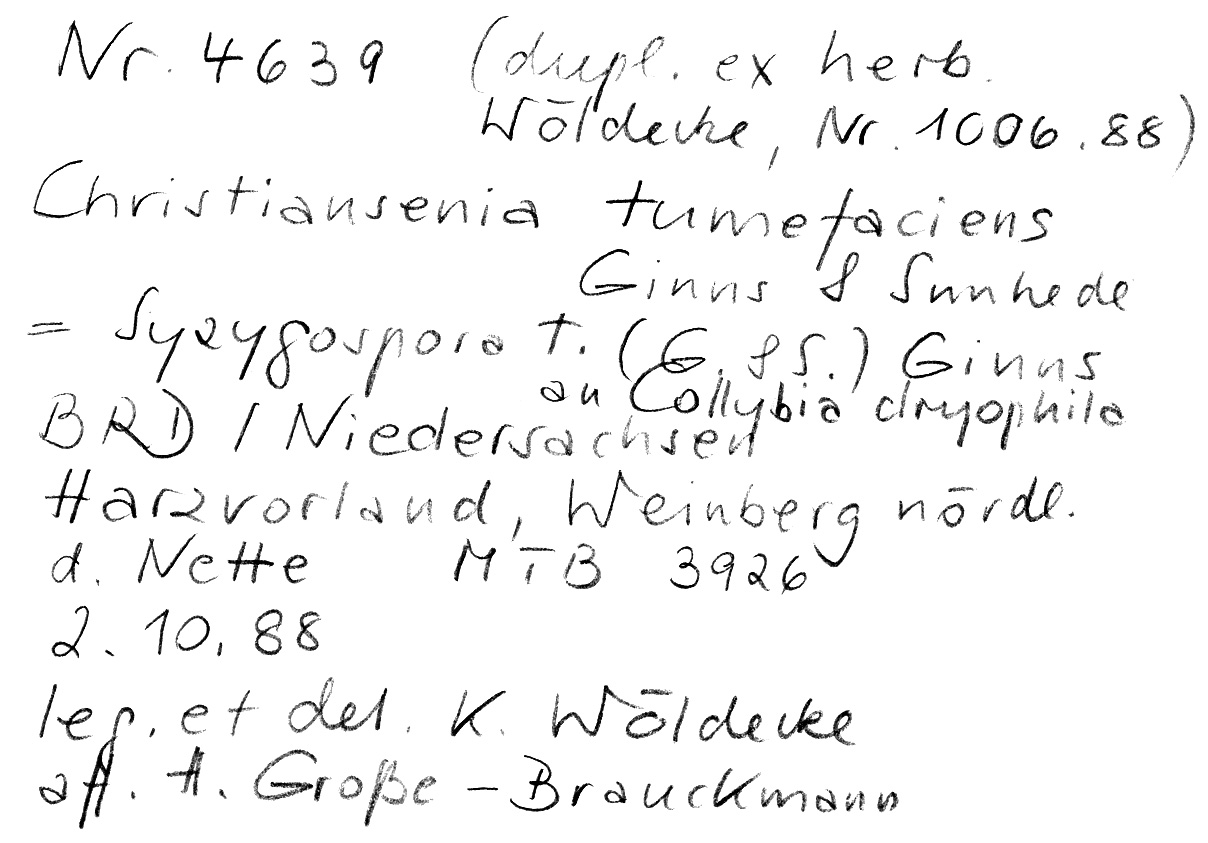 Nr. 4639 (dupl. ex herb.
Wöldecke, Nr. 1006.88)
Christiansenia tumefaciens
Ginns & Sunhede
= Syzygospora t. (G. & S.) Ginns
an Collybia dryophila
BRD / Niedersachsen
Harzvorland, Weinberg nördl.
d. Nette MTB 3926
2. 10. 88
leg. et det. K. Wöldecke
aff. H. Große-Brauckmann